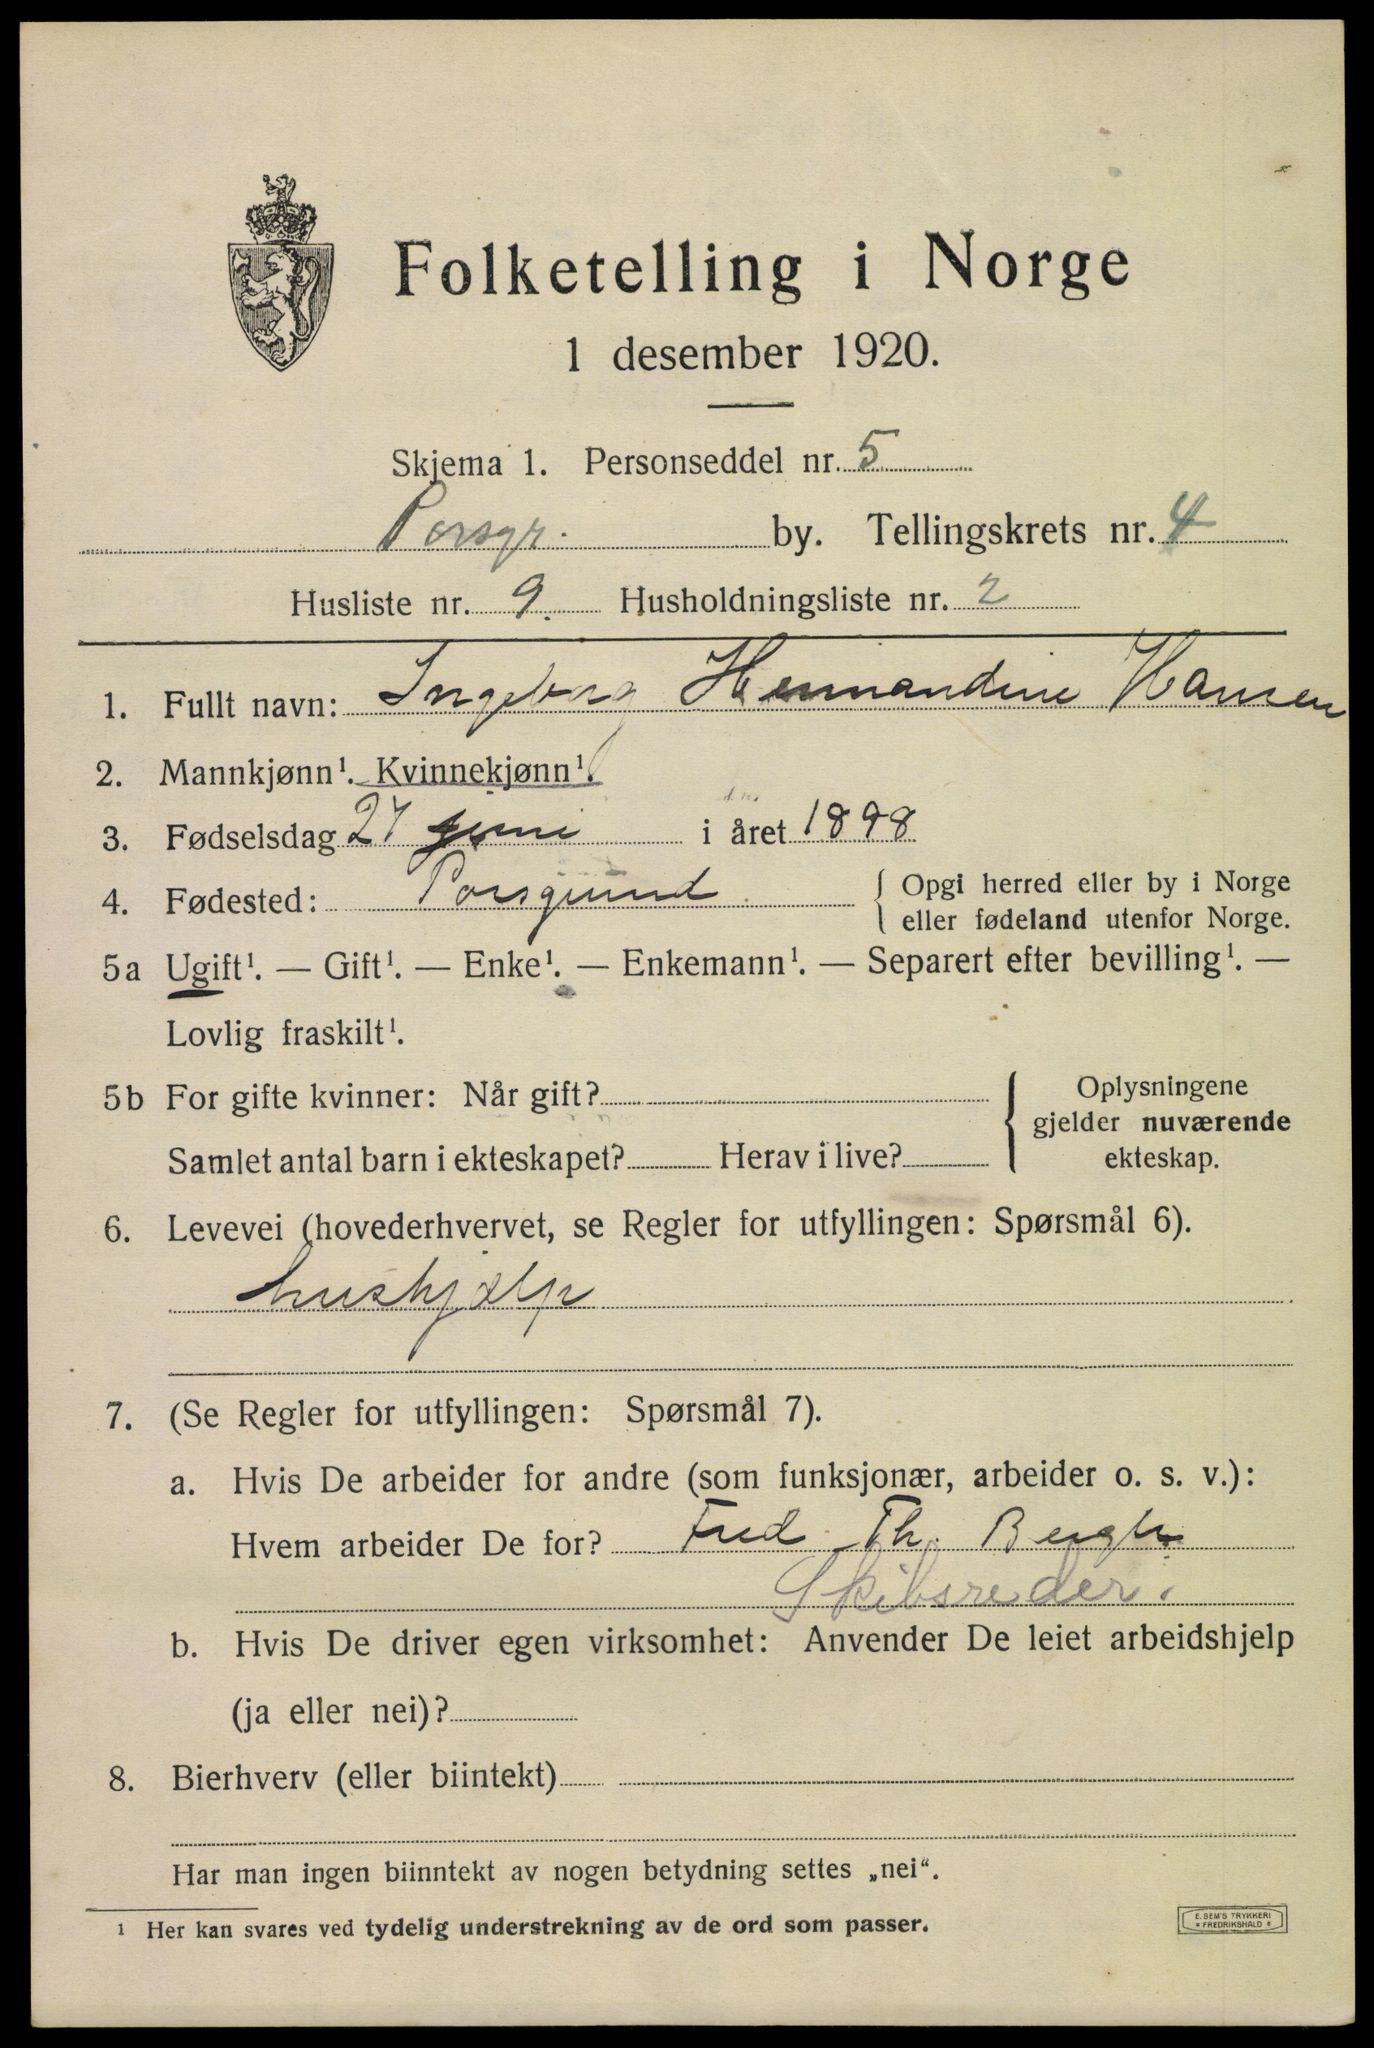 Folketelling i Norge
1 desember 1920.
Skjema 1. Personseddel nr. 5
Porsgr. by. Tellingskrets nr. 4
Husliste nr. 9. Husholdningsliste nr. 2
1. Fullt navn: Ingeborg Hermandine Hansen
2. Mannkjønn¹. Kvinnekjønn¹.
3. Fødselsdag 27 juni i året 1898
4. Fødested: Porsgrund { Opgi herred eller by i Norge
eller fødeland utenfor Norge.
5a Ugift¹. — Gift¹. — Enke¹. — Enkemann¹. — Separert efter bevilling¹. —
Lovlig fraskilt¹.
5b For gifte kvinner: Når gift? { Oplysningene
gjelder nuværende
Samlet antal barn i ekteskapet? Herav i live? ekteskap.
6. Levevei (hovederhvervet, se Regler for utfyllingen: Spørsmål 6).
hushjælp
7. (Se Regler for utfyllingen: Spørsmål 7).
a. Hvis De arbeider for andre (som funksjonær, arbeider o. s. v.):
Hvem arbeider De for? Fred Th. Bergh
Skibsreder.
b. Hvis De driver egen virksomhet: Anvender De leiet arbeidshjelp
(ja eller nei)?
8. Bierhverv (eller biintekt)
Har man ingen biinntekt av nogen betydning settes „nei“.
¹ Her kan svares ved tydelig understrekning av de ord som passer.
E. SEM'S TRYKKERI
* FREDRIKSHALD *